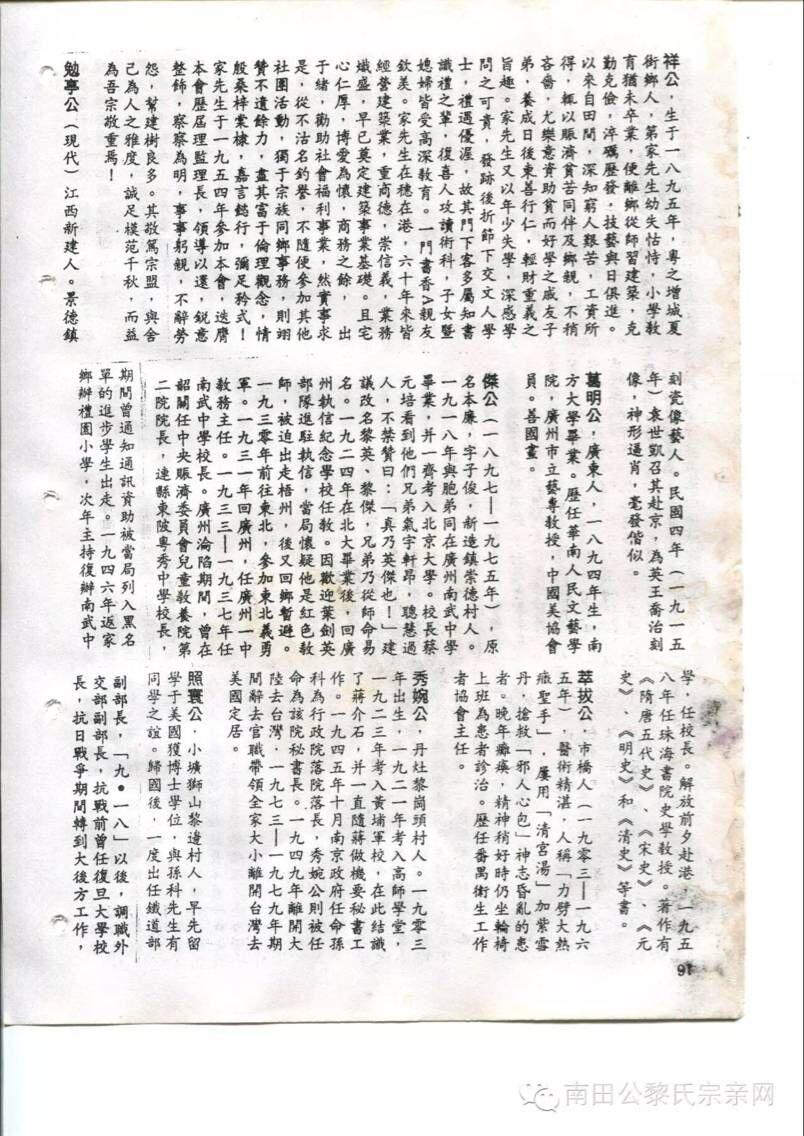 祥公，生于一八九五年，粤之增城夏
街鄉人，第家先生幼失怙恃，小學教
育猶未卒業，便離鄉從師習建築，克
勤克儉，淬礪歷發，技藝與日俱進。
以來自田間，深知窮人艱苦，工資所
得，輒以賑濟貧苦同伴及鄉親，不稍
吝嗇，尤樂意資助貧而好學之戚友子
弟，養成日後東善行仁，輕財重義之
旨趣。家先生又以年少失學，深感學
問之可貴，發跡後折節下交文人學
士，禮遇優渥，故其門下客多屬知書
識禮之輩，復喜人攻讀術科，子女暨
媳婦皆受高深教育。一門書香∧親友
欽羨。家先生在穗在港，六十年來皆
經營建築業，重商德，崇信義，業務
熾盛，早已奠定建築事業基礎。且宅
心仁厚，博愛為懷，商務之餘，出
于緒，勸助社會福利事業，然實事求
是，從不沽名釣譽，不隨便參加其他
社團活動，獨于宗族同鄉事務，則翊
贊不遺餘力，盡其富于倫理觀念，情
殷桑梓棠棣，嘉言懿行，彌足矜式！
家先生于一九五四年參加本會，迭膺
本會歷屆理監理長，領導以還，銳意
整飾，察察為明，事事躬親，不辭勞
怨，幫建樹良多。其敬篤宗盟，與舍
己為人之雅度，誠足模范千秋，而益
為吾宗敬重焉！
勉亭公（現代）江西新建人。景德鎮
刻瓷像藝人。民國四年（一九一五
年）袁世凱召其赴京，為英王喬治刻
像，神形逼肖，毫發偕似。
葛明公，廣東人，一八九四年生，南
方大學畢業。歷任華南人民文藝學
院，廣州市立藝專教授，中國美協會
員。善國畫。
傑公（一八九七—一九七五年），原
名本廉，字子俊，新造鎮崇德村人。
一九一八年與胞弟同在廣州南武中學
畢業，并一齊考入北京大學。校長蔡
元培看到他們兄弟氣宇軒昂，聰慧過
人，不禁贊曰：「真乃英傑也！」建
議改名黎英、黎傑，兄弟乃從師命易
名。一九二四年在北大畢業後，回廣
州執信紀念學校任教。因歡迎葉劍英
部隊進駐執信，當局懷疑他是紅色教
師，被迫出走梧州，後又回鄉暫避。
一九三〇年前往東北，參加東北義勇
軍。一九三一年回廣州，任廣州一中
教務主任。一九三三—一九三七年任
南武中學校長。廣州淪陷期間，曾在
韶關任中央賑濟委員會兒童教養院第
二院院長，連縣東陂粤秀中學校長，
期間曾通知通訊資助被當局列入黑名
單的進步學生出走。一九四六年返家
鄉辦禮園小學，次年主持復辦南武中
學，任校長。解放前夕赴港，一九五
八年任珠海書院史學教授。著作有
《隋唐五代史》、《宋史》、《元
史》、《明史》和《清史》等書。
萃拔公，市橋人（一九〇三—一九六
五年），醫術精湛，人稱「力劈大熱
癥聖手」，屢用「清宮湯」加紫雪
丹，搶救「邪人心包」神志昏亂的患
者。晚年癱瘓，精神稍好時仍坐輪椅
上班為患者診治。歷任番禺衛生工作
者協會主任。
秀婉公，丹灶黎崗頭村人。一九〇三
年出生，一九二一年考入高師學堂，
一九二三年考入黃埔軍校，在此結識
了蔣介石，并一直隨蔣做機要秘書工
作。一九四五年十月南京政府任命孫
科為行政院落院長，秀婉公則被任
命為該院秘書長。一九四九年離開大
陸去台灣，一九七三—一九七九年期
間辭去官職帶領全家大小離開台灣去
美國定居。
照寰公，小壙獅山黎邊村人，早先留
學于美國獲博士學位，與孫科先生有
同學之誼。歸國後，一度出任鐵道部
副部長，「九·一八」以後，調職外
交部副部長，抗戰前曾任復旦大學校
長，抗日戰爭期間轉到大後方工作，
97
南田公黎氏宗亲网